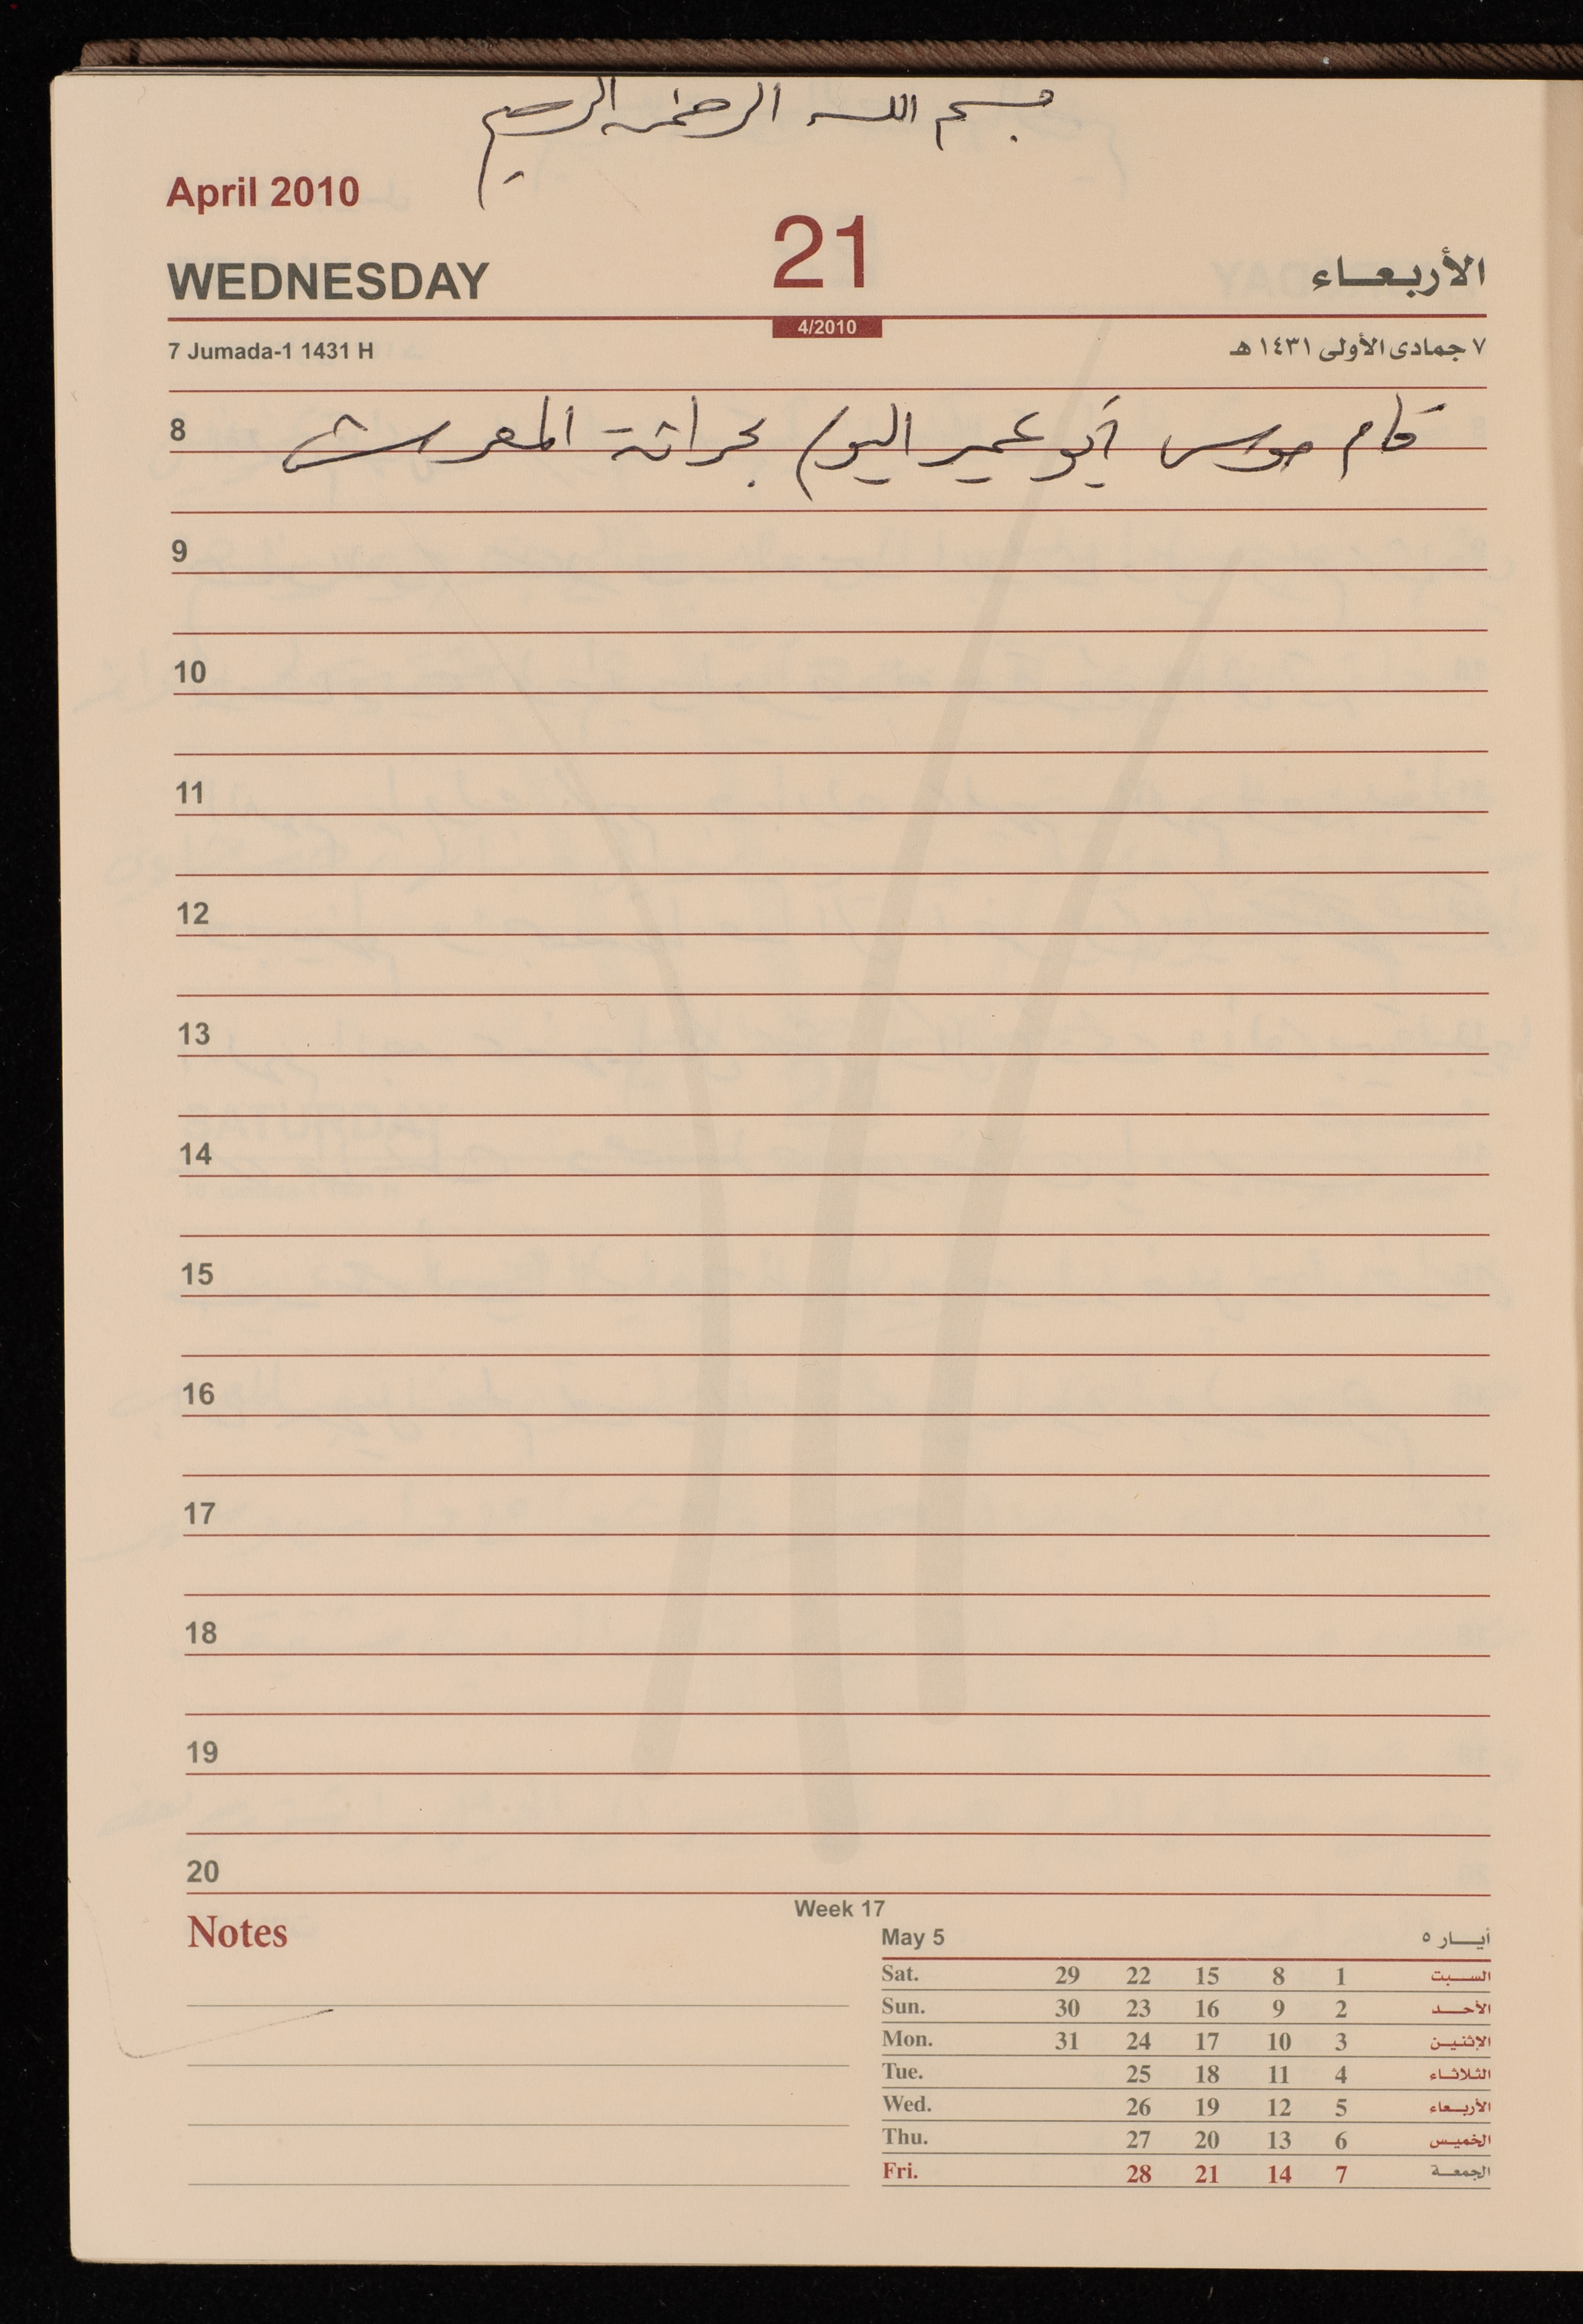 بسم الله الرحمن الرحيم
April 2010
21
WEDNESDAY
الأربعاء
4/2010
7 Jumada-1 1431 H
٧ جمادى الأولى ١٤٣١ هـ
8 قام موسى أبو عمير اليوم بحراثة المعرش
9
10
11
12
13
14
15
16
17
18
19
20
Notes
Week 17
May 5 أيار ٥
Sat. 29 22 15 8 1 السبت
Sun. 30 23 16 9 2 الأحد
Mon. 31 24 17 10 3 الإثنين
Tue. 25 18 11 4 الثلاثاء
Wed. 26 19 12 5 الأربعاء
Thu. 27 20 13 6 الخميس
Fri. 28 21 14 7 الجمعة